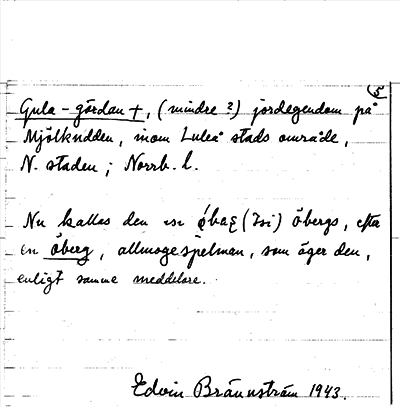 5
Gula-gårdan +, (mindre?) jordegendom på
Mjölkudden, inom Luleå stads område,
N. staden; Norrb. l.
Nu kallas den öbergs, efter
en Öberg, allmogespelman, som äger den,
enligt samme meddelare.
Edvin Brännström 1943.